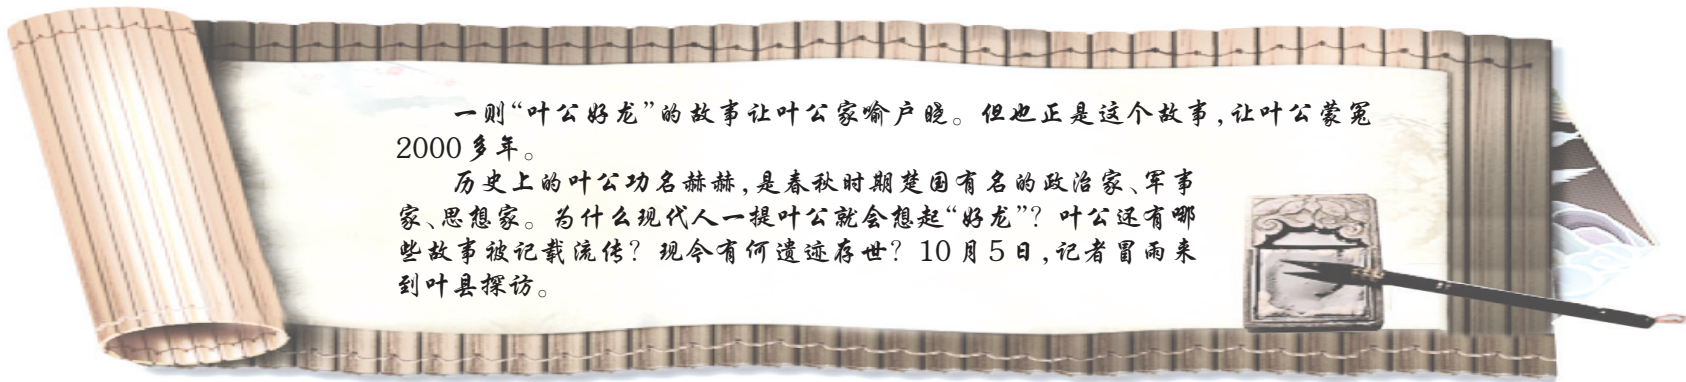 一则“叶公好龙”的故事让叶公家喻户晓。但也正是这个故事,让叶公蒙冤
2000多年。
历史上的叶公功名赫赫,是春秋时期楚国有名的政治家、军事
家、思想家。为什么现代人一提叶公就会想起“好龙”？叶公还有哪
些故事被记载流传？现今有何遗迹存世？10月5日,记者冒雨来
到叶县探访。